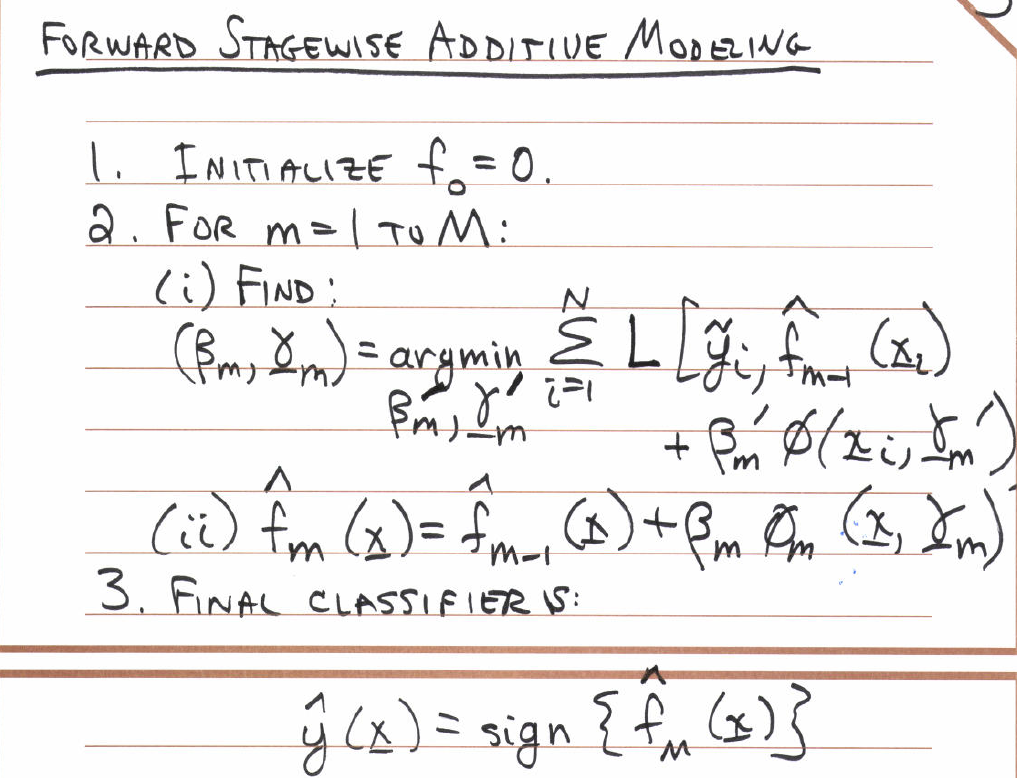 FORWARD STAGEWISE ADDITIVE MODELING
1. INITIALIZE f₀ = 0.
2. FOR m = 1 TO M:
(i) FIND:
(βₘ, γ̲ₘ) = argmin_{βₘ′, γ̲ₘ′} Σ_{i=1}^{N} L [ỹᵢ, f̂ₘ₋₁ (x̲ᵢ)
+ βₘ′ ϕ(x̲ᵢ, γ̲ₘ′)
(ii) f̂ₘ (x̲) = f̂ₘ₋₁ (x̲) + βₘ ϕₘ (x̲, γ̲ₘ)
3. FINAL CLASSIFIER IS:
ŷ (x̲) = sign {f̂_M (x̲)}